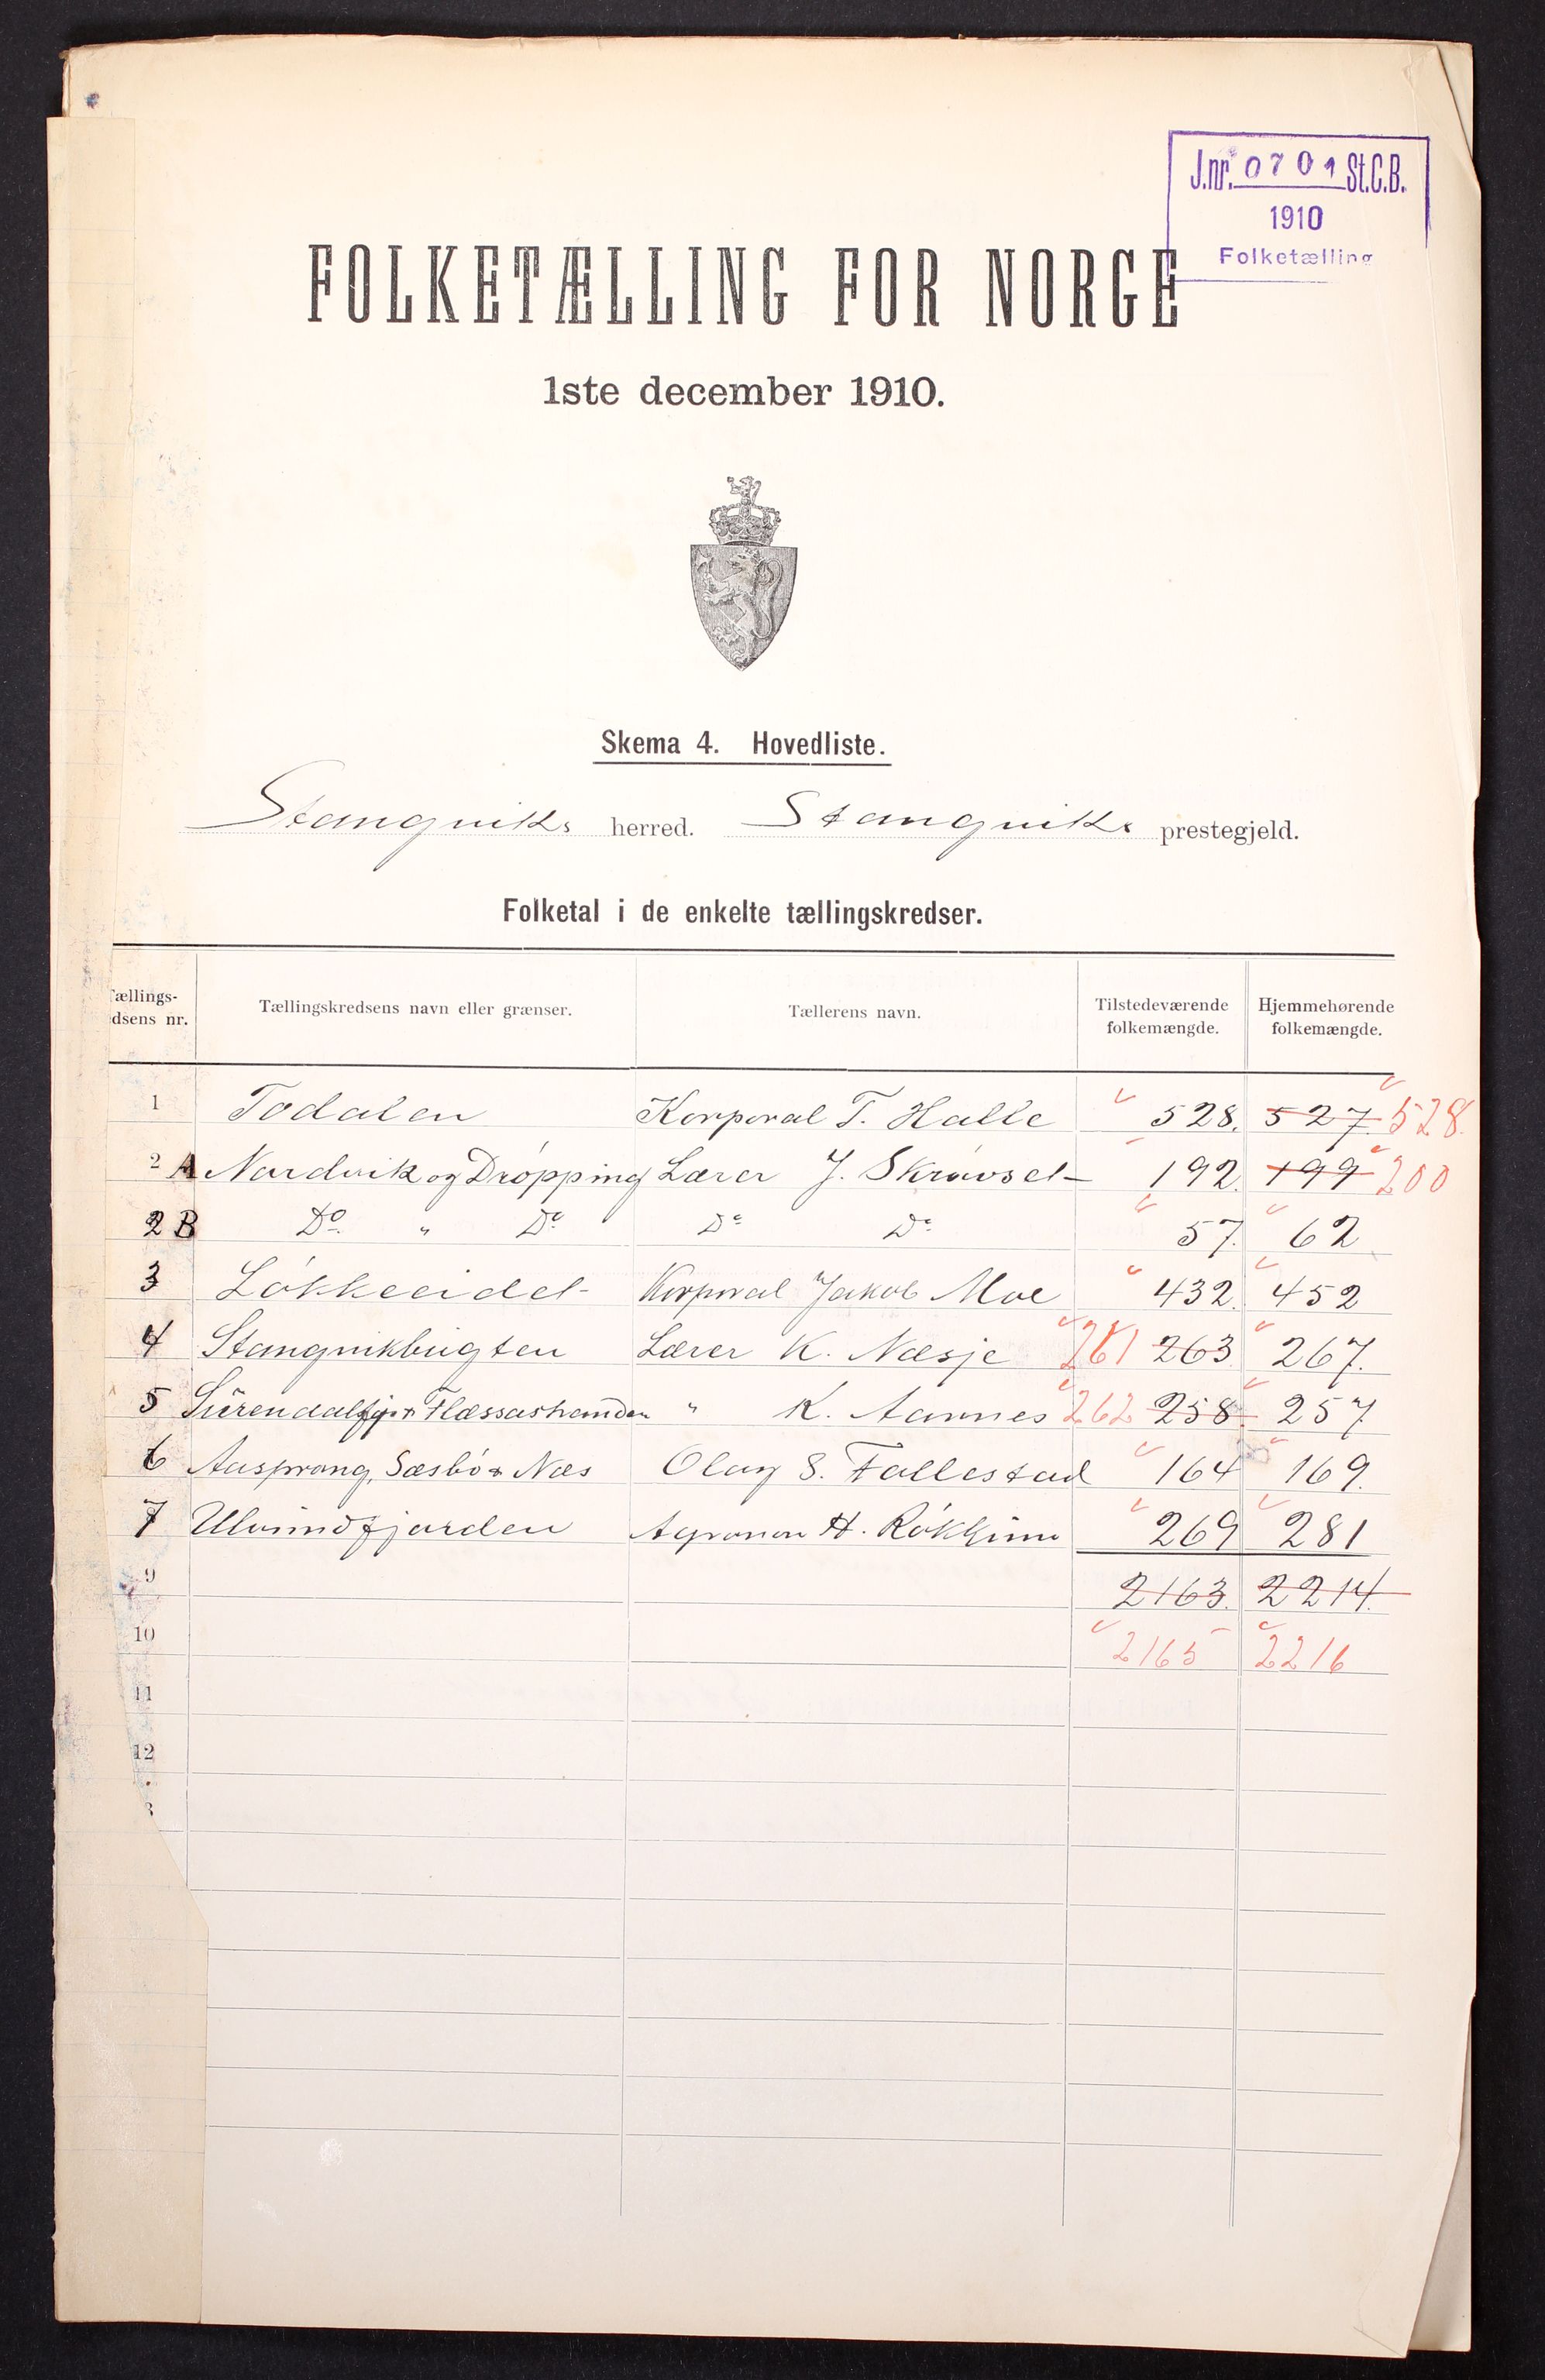 J.nr. 0701 St.C.B.
1910
Folketælling
FOLKETÆLLING FOR NORGE
1ste december 1910.
Skema 4. Hovedliste.
Stangviks herred. Stangviks prestegjeld.
Folketal i de enkelte tællingskredser.
Tællings-
dsens nr. Tællingskredsens navn eller grænser. Tællerens navn. Tilstedeværende folkemængde. Hjemmehørende folkemængde.
1 Todalen Korporal T. Halle 528. 527. 528.
2 A Nordvik og Dröpping Lærer J. Skrövset 192. 199 200
2 B Do " Do Do Do 57. 62
3 Lökkeeidet Korporal Jakob Moe 432. 452
4 Stangvikbugten Lærer K. Næsje 261 263 267.
5 Flæssastranden " K. Aannes 262 258 257
6 Aasprong, Sæsbö & Næs Olav S. Fallestad 164 169.
7 Ulvundfjorden Agronom H. 269 281
9 2163. 2214.
10 2165 2216
11
12